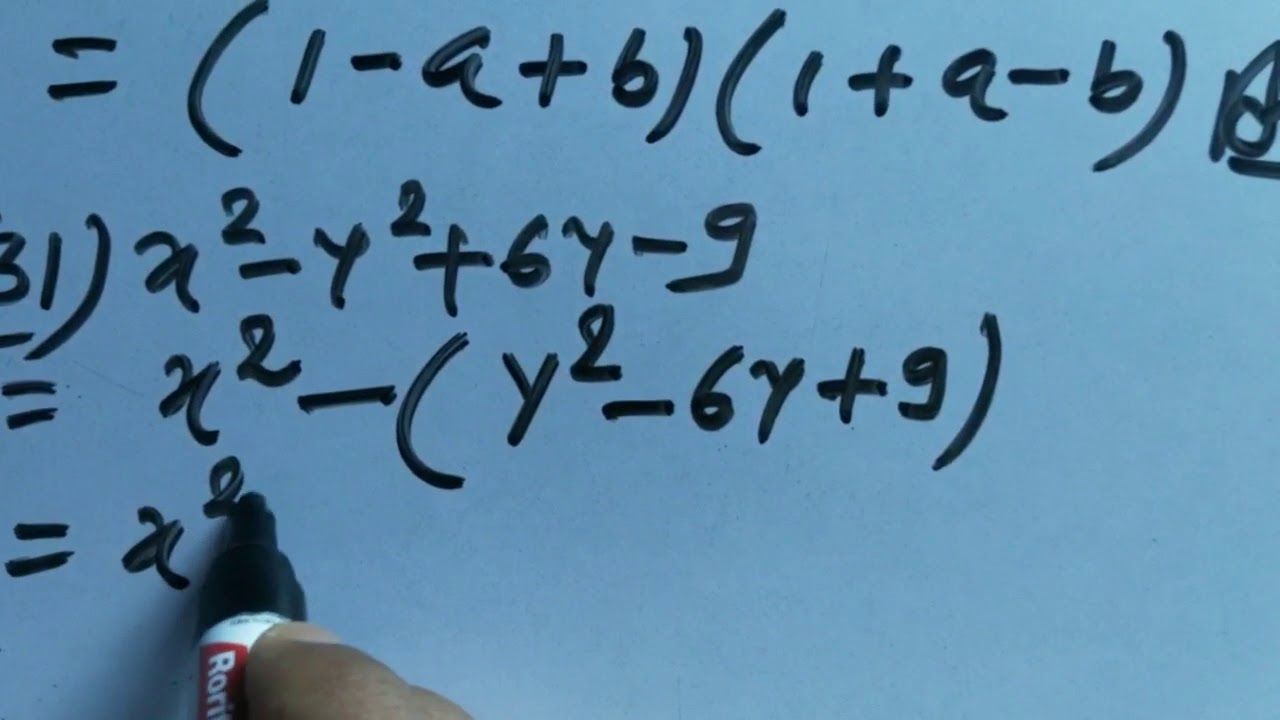 = (1-a+b)(1+a-b)
31) x²-y²+6y-9
= x²-(y²-6y+9)
= x²
Rorit